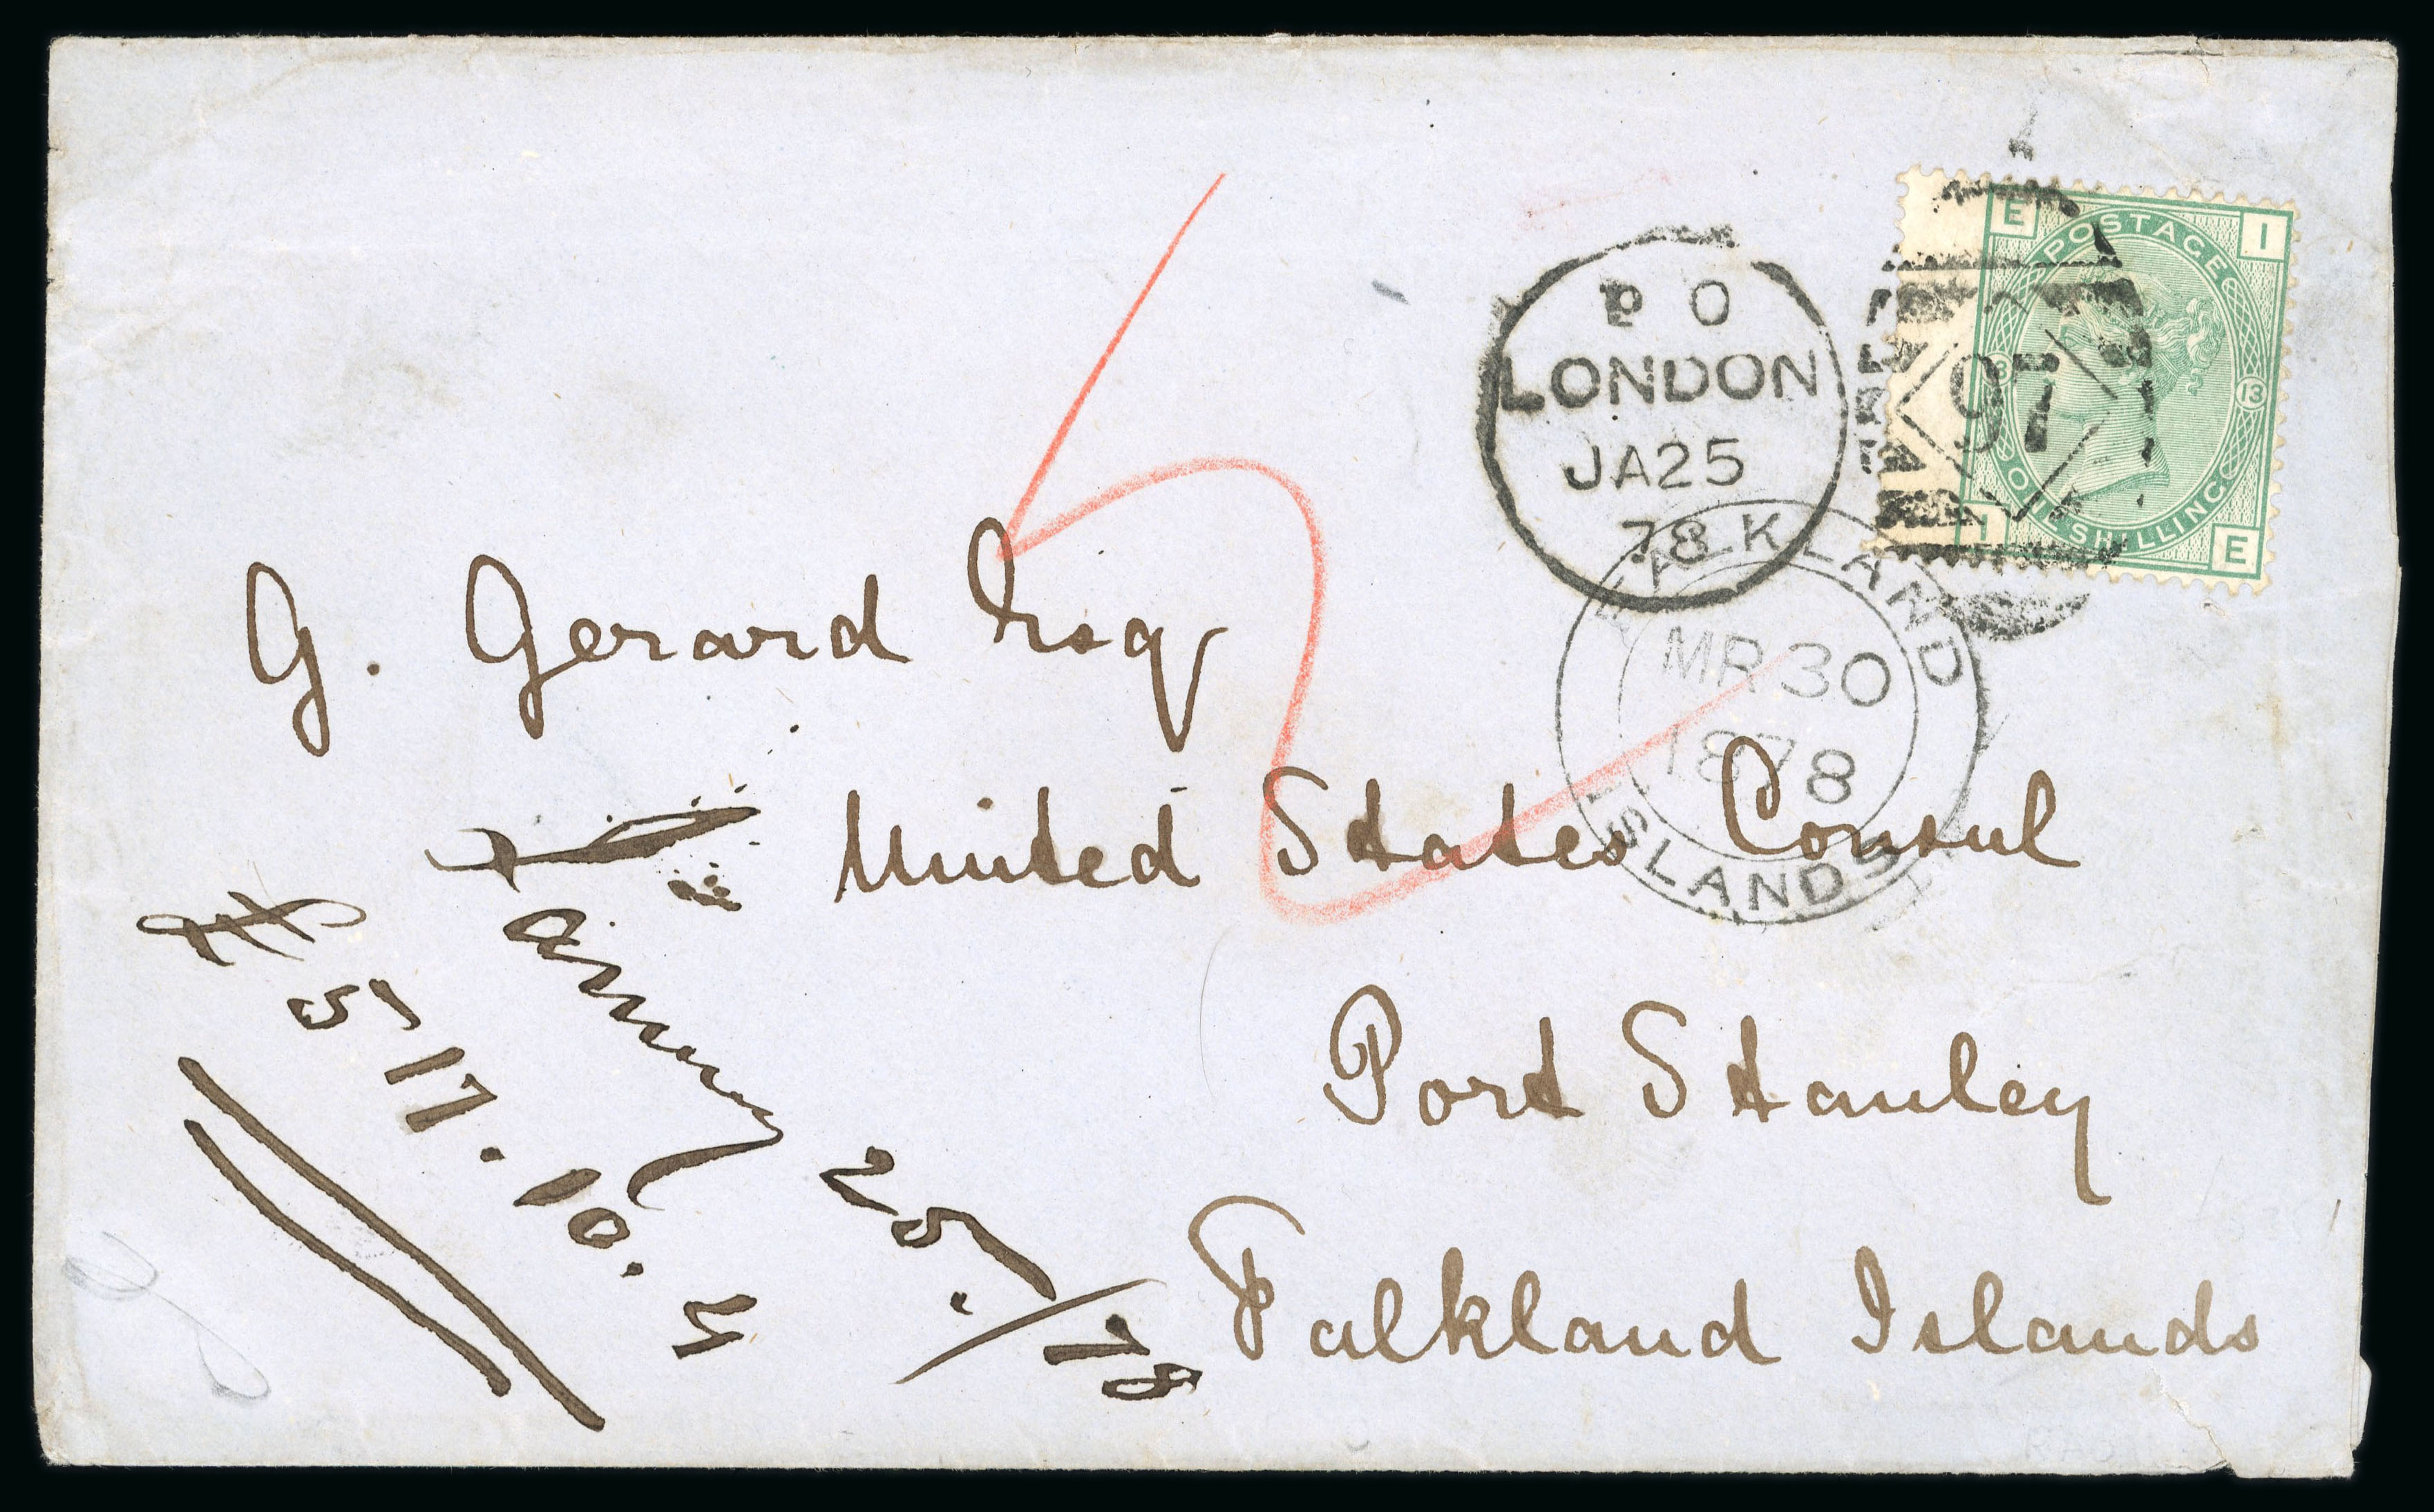 P O
LONDON
JA25
78
97
E I
POSTAGE
13 13
ONE SHILLING
I E
FALKLAND
MR 30
1878
ISLANDS
5
G. Gerard Esqr
United States Consul
Port Stanley
Falkland Islands
January 25./78
£517.10.4